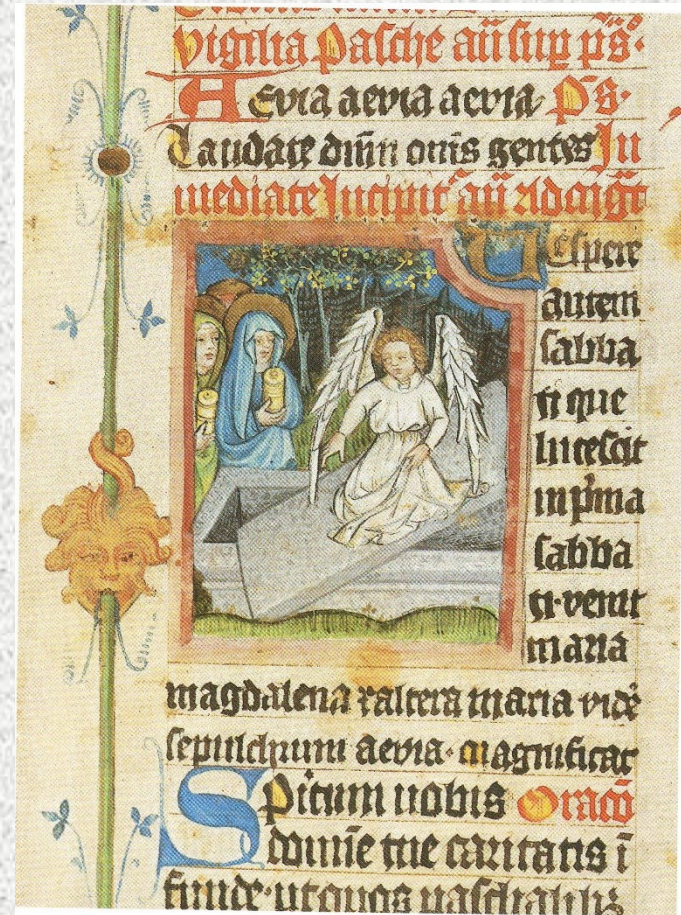 vigilia Pasche añ sup ps.
Aevia aevia aevia Ps.
Laudate dñm oms gentes In
mediate Incipit añ Ad
Vespere
autem
sabba
ti que
lucescit
in pma
sabba
ti venit
maria
magdalena et altera maria videre
sepulchrum aevia magnificat
Spitum nobis Oracō
domine tue caritatis ī
funde ut quos paschalibus